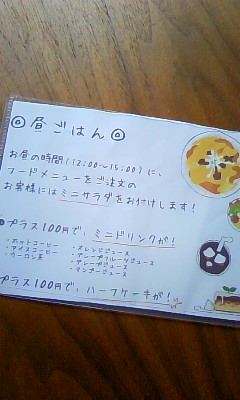 ◎昼ごはん◎
お昼の時間(12:00〜15:00)に、
フードメニューをご注文の
お客様にはミニサラダをお付けします!
プラス100円で、ミニドリンクが!
・ホットコーヒー ・オレンジジュース
・アイスコーヒー ・グレープフルーツジュース
・ウーロン茶 ・グレープジュース
・マンゴージュース
プラス100円で、ハーフケーキが!